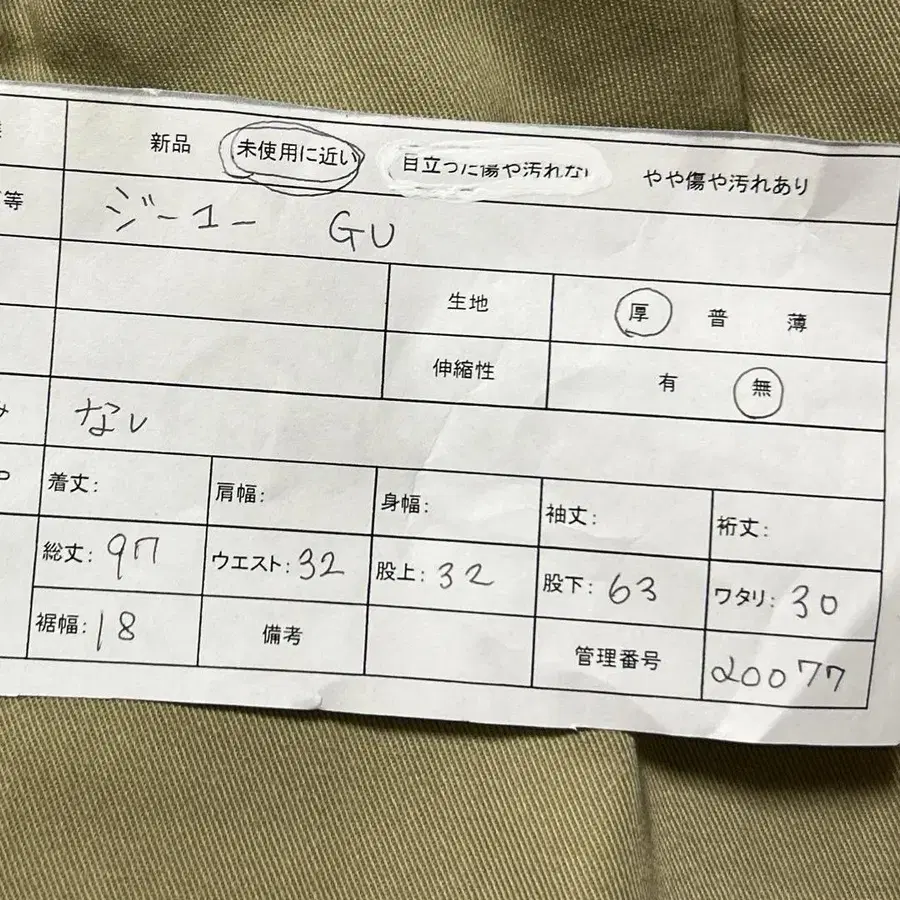 新品 未使用に近い 目立った傷や汚れない やや傷や汚れあり
等 ジーユー GU
生地 厚 普 薄
伸縮性 有 無
み なし
着丈: 肩幅: 身幅: 袖丈: 裄丈:
総丈: 97 ウエスト: 32 股上: 32 股下: 63 ワタリ: 30
裾幅: 18 備考 管理番号 20077